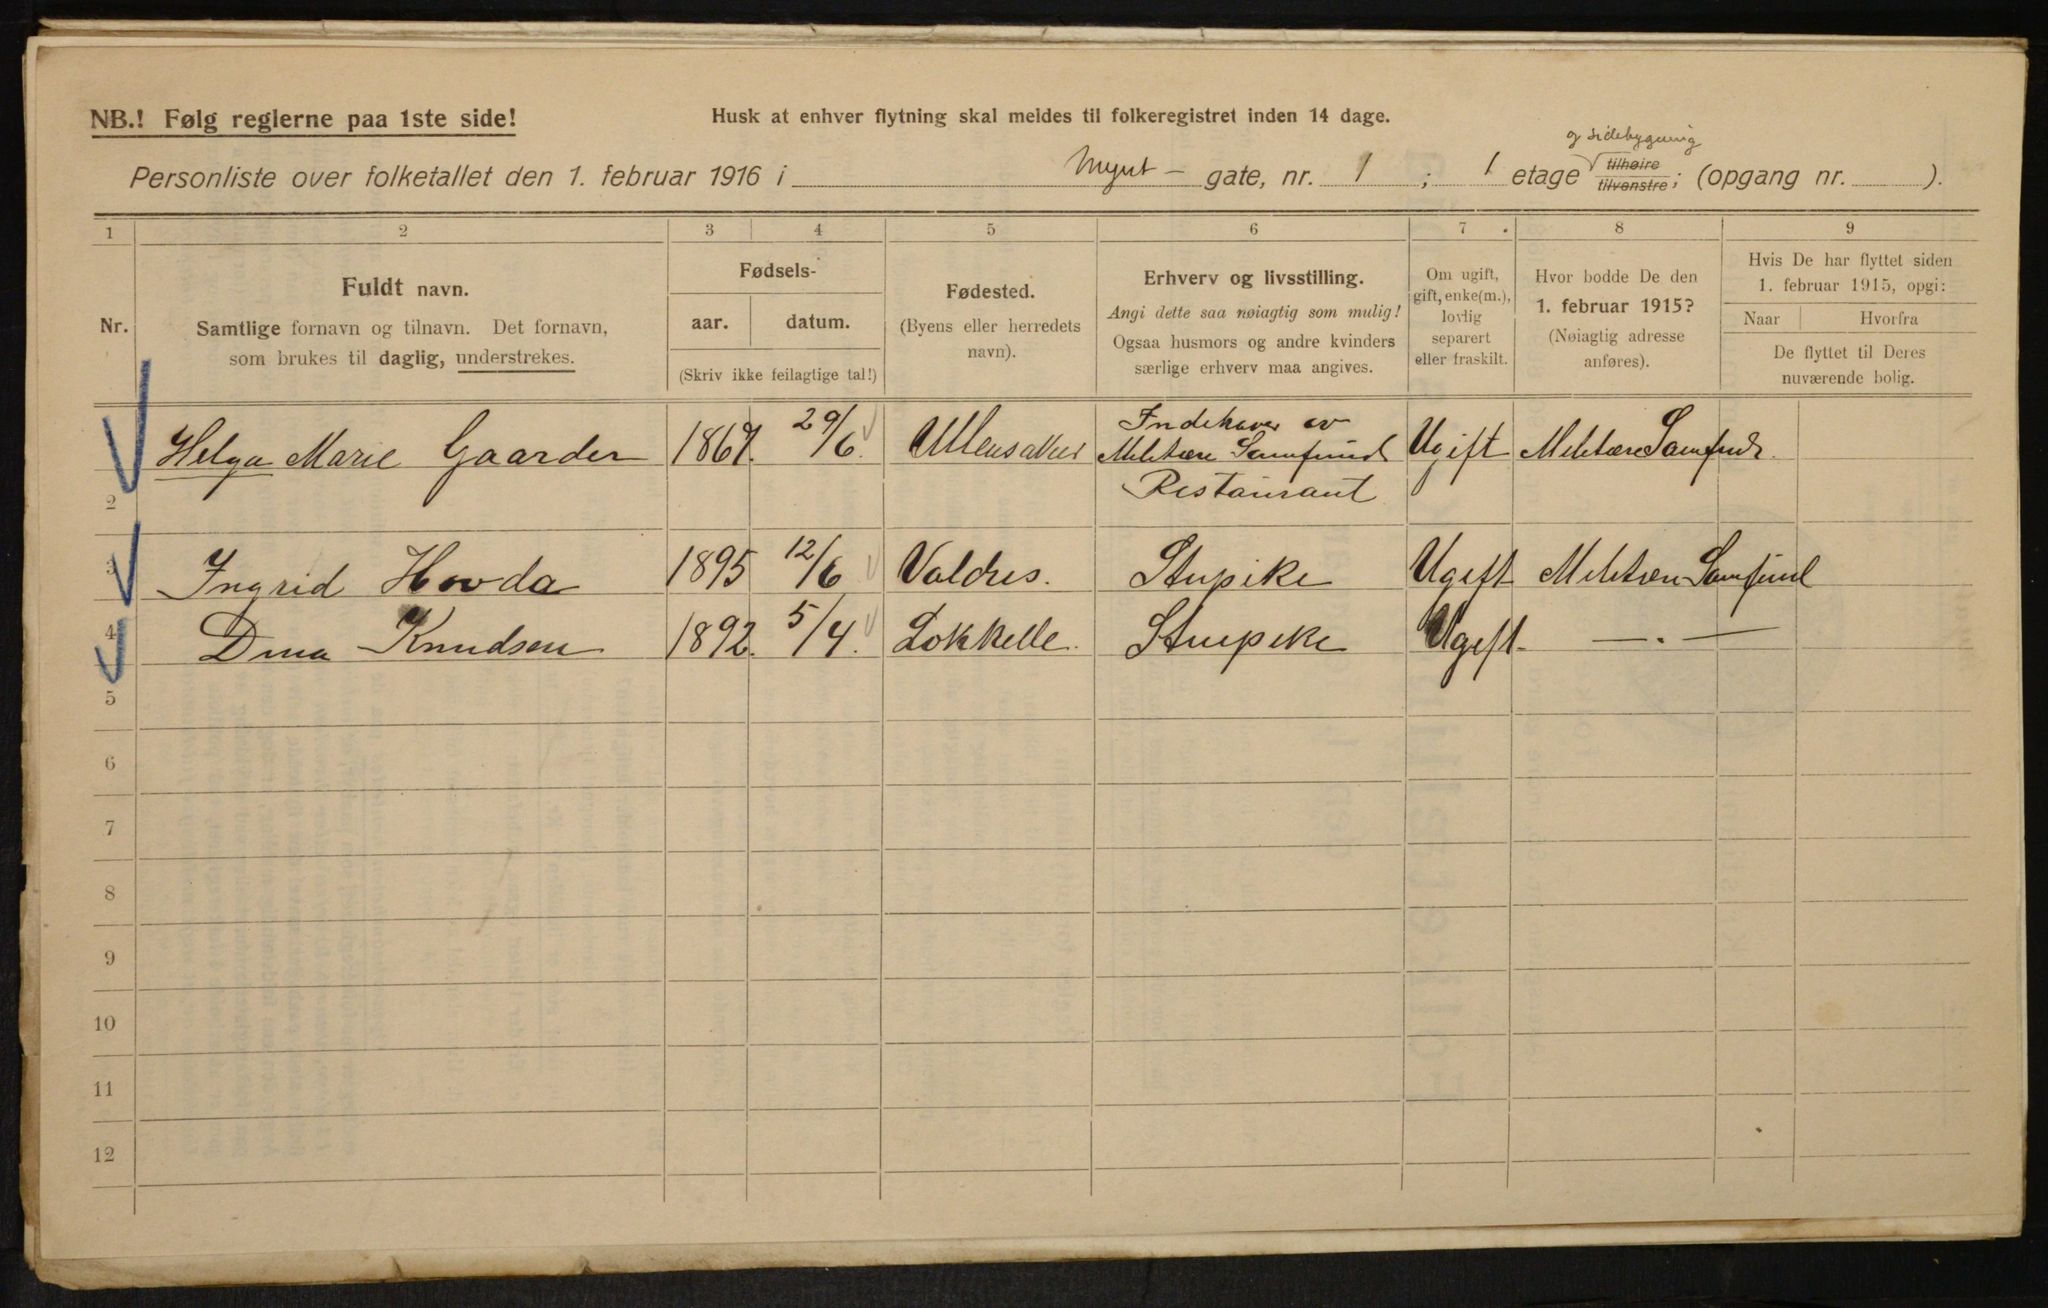 NB.! Følg reglerne paa 1ste side!
Husk at enhver flytning skal meldes til folkeregistret inden 14 dage.
og sidebygning
Personliste over folketallet den 1. februar 1916 i Mynt- gate, nr. 1 ; 1 etage tilhøire tilvenstre; (opgang nr. ).
1 2 3 4 5 6 7 8 9
Nr.
Fuldt navn.
Samtlige fornavn og tilnavn. Det fornavn,
som brukes til daglig, understrekes.
Fødsels-
aar. datum.
(Skriv ikke feilagtige tal!)
Fødested.
(Byens eller herredets
navn).
Erhverv og livsstilling.
Angi dette saa nøiagtig som mulig!
Ogsaa husmors og andre kvinders
særlige erhverv maa angives.
Om ugift,
gift, enke(m.),
lovlig
separert
eller fraskilt.
Hvor bodde De den
1. februar 1915?
(Nøiagtig adresse
anføres).
Hvis De har flyttet siden
1. februar 1915, opgi:
Naar Hvorfra
De flyttet til Deres
nuværende bolig.
Helga Marie Gaarder 1867. 29/6. Ullensaker Indehaver av Militære Samfund Restaurant Ugift Militære Samfund.
2
3 Ingrid Hovda 1895 12/6 Valdres. Stupike Ugift Militæn Samfund
4 Dina Knudsen 1892. 5/4. Løkkelle. Stupike Ugift. —.—
5
6
7
8
9
10
11
12